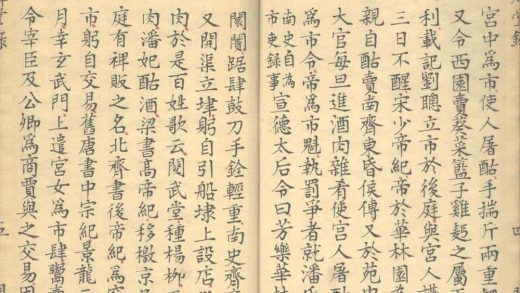 堂錄
宮中爲市使人屠酤手揣斤兩重
又令西園賣葵菜籃子雞麪之屬
利載記劉聰立市於後庭與宮人讌
三日不醒宋少帝紀帝於華林園爲
親自酤賣南齊東昏侯傳又於苑中
大官每旦進酒肉雜肴使宮人屠
爲市令帝爲市魁執罰爭者就潘氏
南史自爲
市吏錄事
宣德太后令曰芳樂華林
闤闠踞肆鼓刀手銓輕重南史齊
又開渠立埭躬自引船埭上設店
肉於是百姓歌云閱武堂種楊柳
肉潘妃酤酒梁書高帝紀移檄京
庭有裨販之名北齊書後帝紀爲
市躬自交易舊唐書中宗紀景龍
月幸玄武門上遣宮女爲市肆鬻
令宰臣及公卿爲商賈與之交易因
堂錄
五